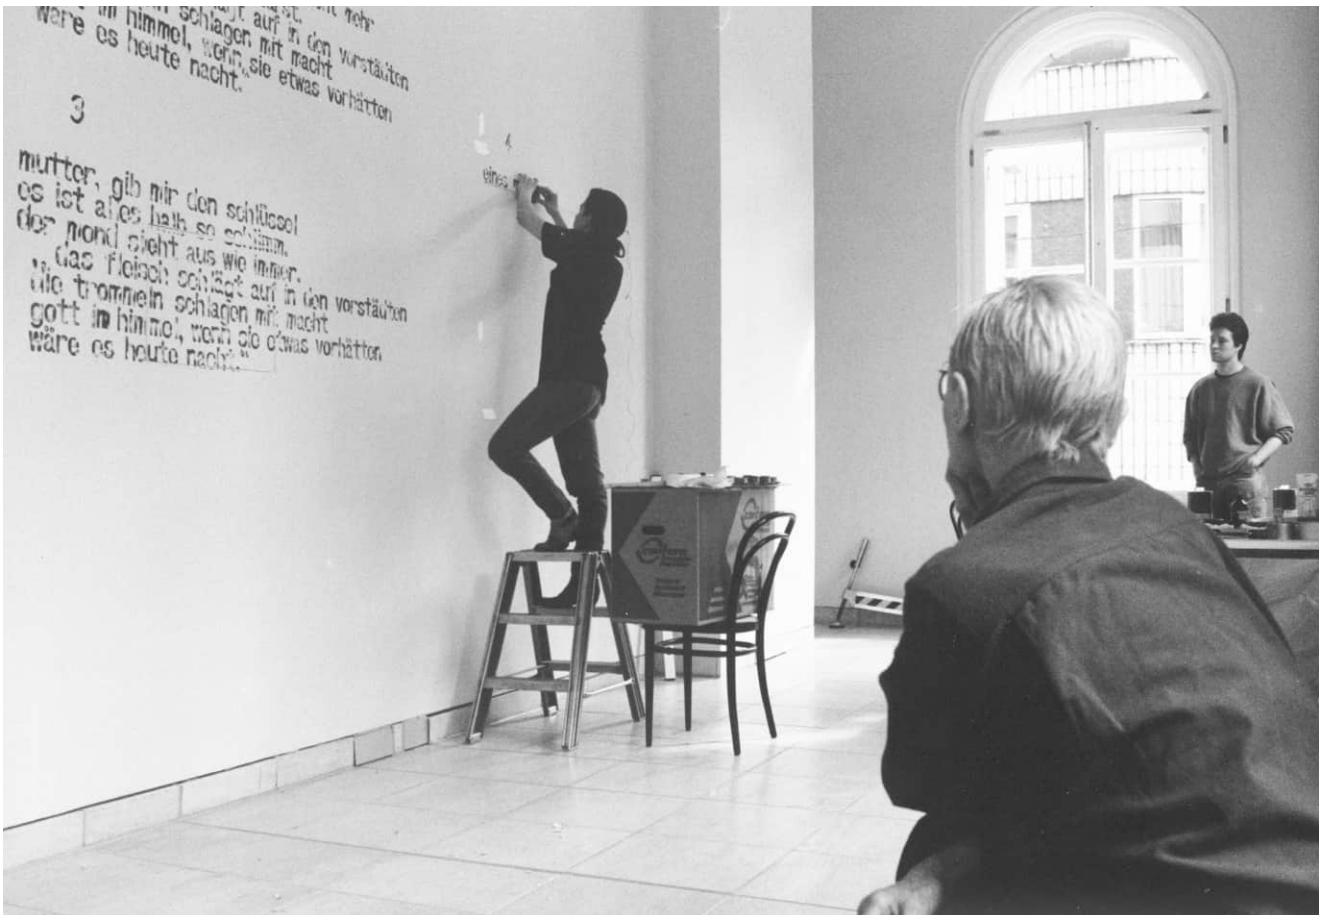 mehr
schlägt auf in den vorstädten
im himmel, schlagen mit macht
wenn sie etwas vorhätten
wäre es heute nacht."
3
mutter, gib mir den schlüssel
es ist alles halb so schlimm.
der mond sieht aus wie immer.
"das fleisch schlägt auf in den vorstädten
die trommeln schlagen mit macht
gott im himmel, wenn sie etwas vorhätten
wäre es heute nacht."
4
eines